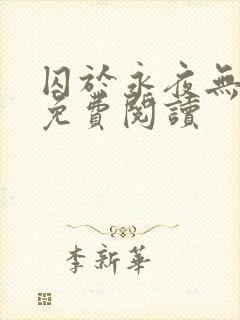 囚於永夜無
免費閱讀
李新華